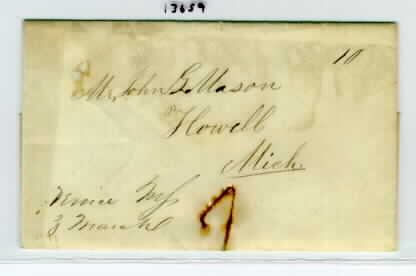 13659
10
Mr John B Mason
Howell
Mich.
Venice
3 March